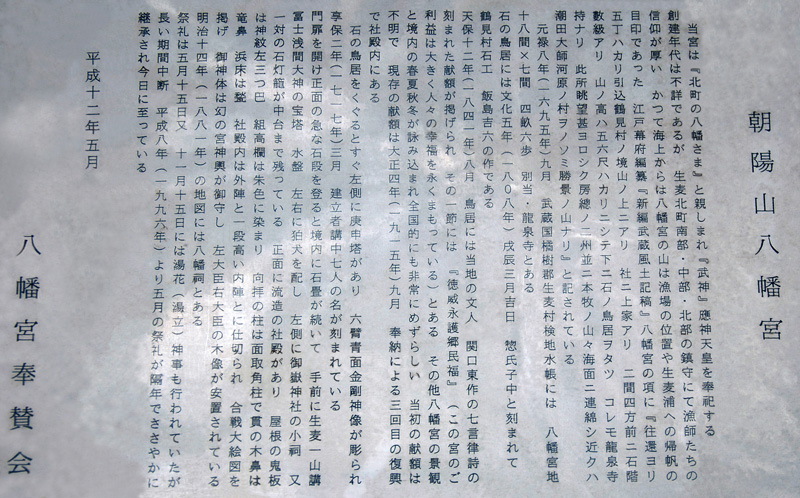 朝陽山八幡宮
当宮は『北町の八幡さま』と親しまれ『武神』應神天皇を奉祀する
創建年代は不詳であるが 生麦北町南部・中部・北部の鎮守にて漁師たちの
信仰が厚い かつて海上からは八幡宮の山は漁場の位置や生麦浦への帰帆の
目印であった 江戸幕府編纂『新編武蔵風土記稿』八幡宮の項に『往還ヨリ
五丁ハカリ引込鶴見村ノ境山ノ上ニアリ 社ニ上家アリ 二間四方前ニ石階
数級アリ 山ノ高ハ五六尺ハカリニシテ下ニ石ノ鳥居ヲタツ コレモ龍泉寺
持ナリ 此所眺望甚ヨロシク房總ノ二州並ニ本牧ノ山々海面ニ連綿シ近クハ
潮田大師河原ノ村ヲノソミ勝景ノ山ナリ』と記されている
元禄八年(一六九五年)九月 武蔵国橘樹郡生麦村検地水帳には 八幡宮地
十八間×七間 四畝六歩 別当・龍泉寺とある
石の鳥居には文化五年(一八〇八年)戊辰三月吉日 惣氏子中と刻まれて
鶴見村石工 飯島吉六の作である
天保十二年(一八四一年)八月 鳥居には当地の文人 関口東作の七言律詩の
刻まれた献額が掲げられ その一節には 『徳威永護郷民福』(この宮のご
利益は大きく人々の幸福を永くまもっている)とある その他八幡宮の景観
と境内の春夏秋冬が詠み込まれ全国的にも非常にめずらしい 当初の献額は
不明で 現存の献額は大正四年(一九一五年)九月 奉納による三回目の復興
で社殿内にある
石の鳥居をくぐるとすぐ左側に庚申塔があり 六臂青面金剛神像が彫られ
享保二年(一七一七年)三月 建立者講中七人の名が刻まれている
門扉を開け正面の急な石段を登ると境内に石畳が続いて 手前に生麦一山講
冨士浅間大神の宝塔 水盤 左右に狛犬を配し 左側に御嶽神社の小祠 又
一対の石灯籠が中台まで残っている 正面に流造の社殿があり 屋根の鬼板
は神紋左三つ巴 組高欄は朱色に染まり 向拝の柱は面取角柱で貫の木鼻は
竜鼻 浜床は甃 社殿内は外陣と一段高い内陣とに仕切られ 合戦大絵図を
掲げ 御神体は幻の宮神輿が御守し 左大臣右大臣の木像が安置されている
明治十四年(一八八一年)の地図には八幡祠とある
祭礼は五月十五日又 十一月十五日には湯花(湯立)神事も行われていたが
長い期間中断 平成八年(一九九六年)より五月の祭礼が隔年でささやかに
継承され今日に至っている
平成十二年五月
八幡宮奉賛会